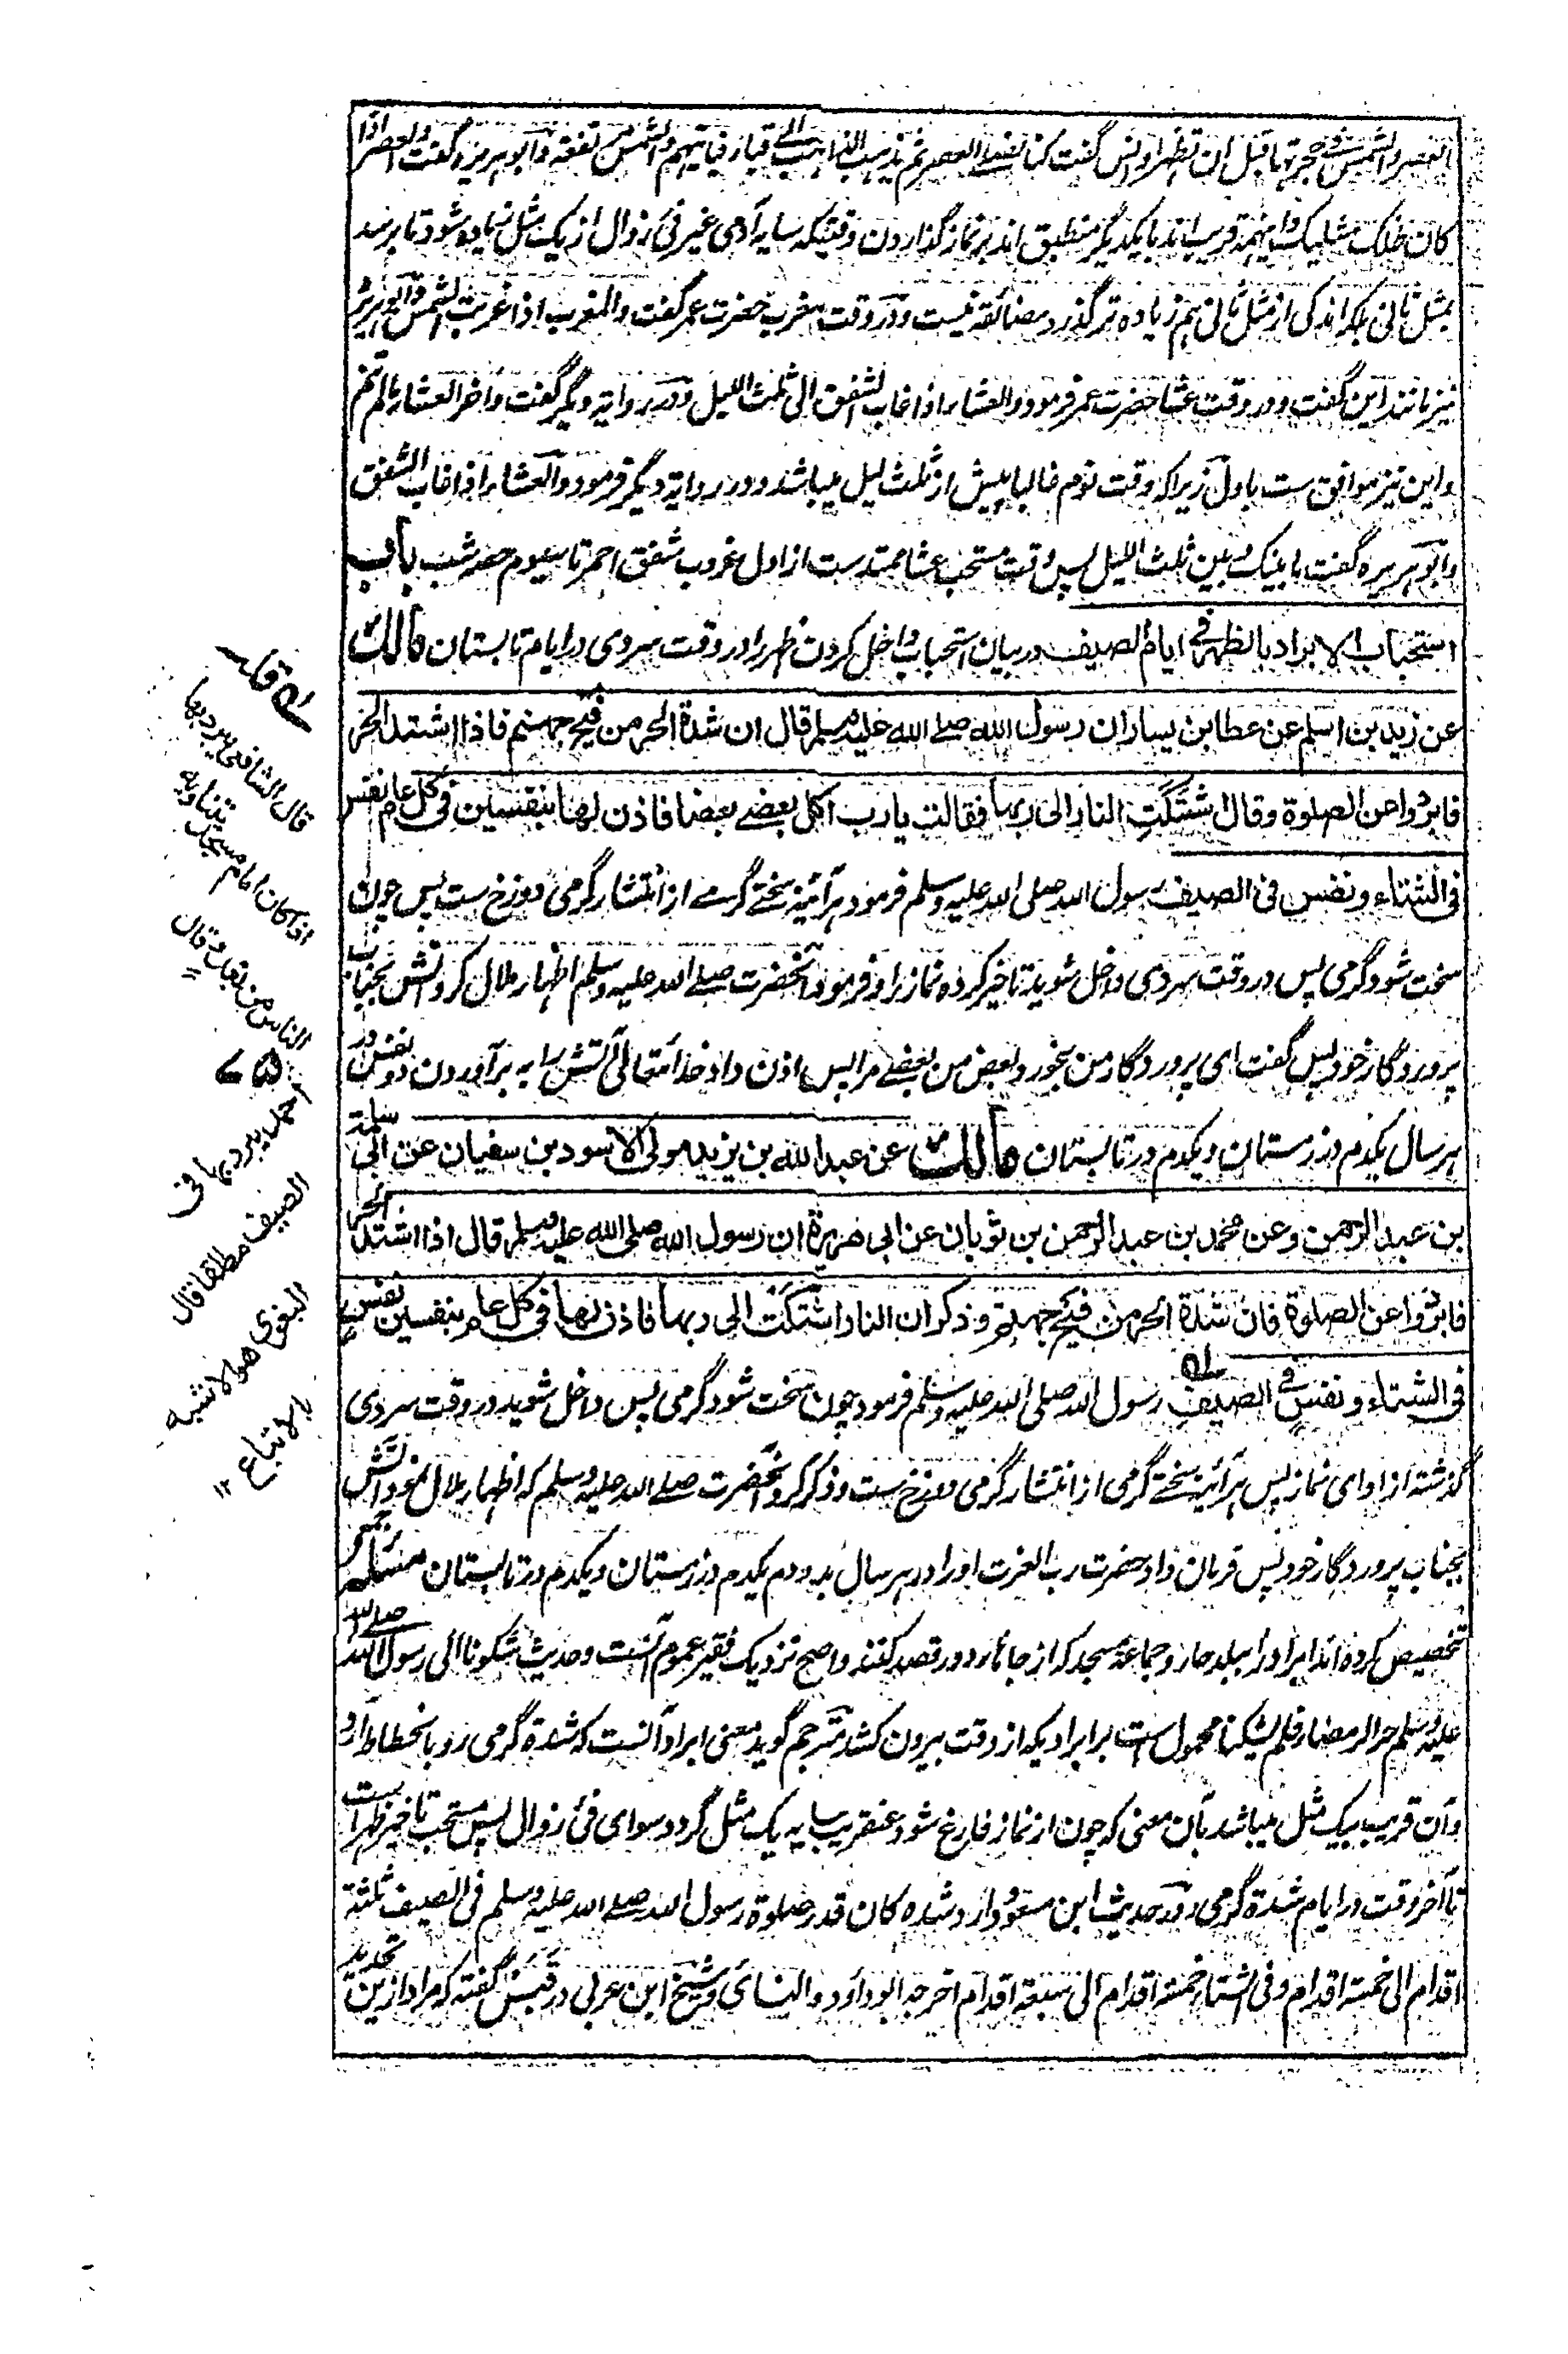 العصر والشمس فی حجرتها قبل ان تظهر و انس گفت کنا نصلے العصر ثم یذهب الذاهب الے قبا فیاتیهم والشمس مرتفعة و ابوهریره گفت والعصر اذا
کان ظلک مثلیک و اینهمه قریب اند با یکدیگر منطبق اند بر نماز گذاردن وقتیکه سایه آدمی غیر فئ زوال از یک مثل زیاده شود تا برسد
بمثل ثانی بلکه اندکی از مثل ثانی هم زیاده تر گذرد مضائقه نیست و در وقت مغرب حضرت عمر گفت والمغرب اذا غربت الشمس و ابوهریره
نیز مانند این گفت و در وقت عشا حضرت عمر فرمود والعشاء اذا غاب الشفق الی ثلث اللیل و در روایة دیگر گفت و اخر العشاء ما لم تنم
و این نیز موافق ست باول زیرا که وقت نوم غالبا پیش از ثلث لیل میباشد و در روایة دیگر فرمود والعشاء اذا غاب الشفق
و ابوهریره گفت ما بینک و بین ثلث اللیل پس وقت مستحب عشا ممتد ست از اول غروب شفق احمر تا سیوم حصه شب باب
استحباب الابراد بالظهر فے ایام الصیف در بیان استحباب داخل کردن ظهر را در وقت سردی در ایام تابستان مالك
عن زید بن اسلم عن عطا بن یسار ان رسول الله صلے الله علیه وسلم قال ان شدة الحر من فیح جهنم فاذا اشتد الحر
فابردوا عن الصلوة وقال اشتکت النار الی ربها فقالت یا رب اکل بعضے بعضا فاذن لها بنفسین فی کل عام نفس
فی الشتاء ونفس فی الصیف رسول الله صلی الله علیه وسلم فرمود هر آئینه سختے گرمے از انتشار گرمی دوزخ ست پس چون
سخت شود گرمی پس در وقت سردی داخل شوید تاخیر کرده نماز را و فرمود آنحضرت صلے الله علیه وسلم اظهار ملال کرد آتش بجناب
پروردگار خود پس گفت ای پروردگار من بخورد بعض من بعضے مرا پس اذن داد خدا تعالی آتش را به برآوردن دو نفس در
هر سال یکدم در زمستان و یکدم در تابستان مالك عن عبد الله بن یزید مولی الاسود بن سفیان عن ابی سلمة
بن عبد الرحمن وعن محمد بن عبد الرحمن بن ثوبان عن ابی هریرة ان رسول الله صلی الله علیه وسلم قال اذا اشتد الحر
فابردوا عن الصلوة فان شدة الحر من فیح جهنم وذکر ان النار اشتکت الی ربها فاذن لها فی کل عام بنفسین نفس
فی الشتاء ونفس فے الصیف رسول الله صلی الله علیه وسلم فرمود چون سخت شود گرمی پس داخل شوید در وقت سردی
گذشته از ادای نماز پس هر آئینه سختے گرمی از انتشار گرمی دوزخ ست و ذکر کرد آنحضرت صلے الله علیه وسلم که اظهار ملال نمود آتش
بجناب پروردگار خود پس فرمان داد حضرت رب العزت اورا در هر سال بدو دم یکدم در زمستان و یکدم در تابستان مسئله
تخصیص کرده اند ابراد را ببلد حار و جماعة مسجد که از جائے دور قصد کنند واصح نزدیک فقیر عموم آنست و حدیث شکونا الی رسول الله صلے الله
علیه وسلم حر الرمضاء فلم یشکنا محمول است بر ابرادیکه از وقت بیرون کشد مترجم گوید معنی ابراد آنست که شدة گرمی رو بانحطاط آرد
و آن قریب بیک مثل میباشد بآن معنی که چون از نماز فارغ شود عنقریب سایه یک مثل گردد سوای فئ زوال پس مستحب تاخیر ظهر است
تا آخر وقت در ایام شدة گرمی و در حدیث ابن مسعود وارد شده کان قدر صلوة رسول الله صلے الله علیه وسلم فی الصیف ثلثة
اقدام الی خمسة اقدام و فی الشتاء خمسة اقدام الی سبعة اقدام اخرجه ابوداود والنسائی و شیخ ابن عربی در قبس گفته که مراد ازین تحدید
قال الشافعی یبرد بها
اذا کان امام مسجد ینتابه
الناس من بعد وقال
احمد یبرد بها فی
الصیف مطلقا قال
البغوی هو الاشبه
بالاتباع ١٢